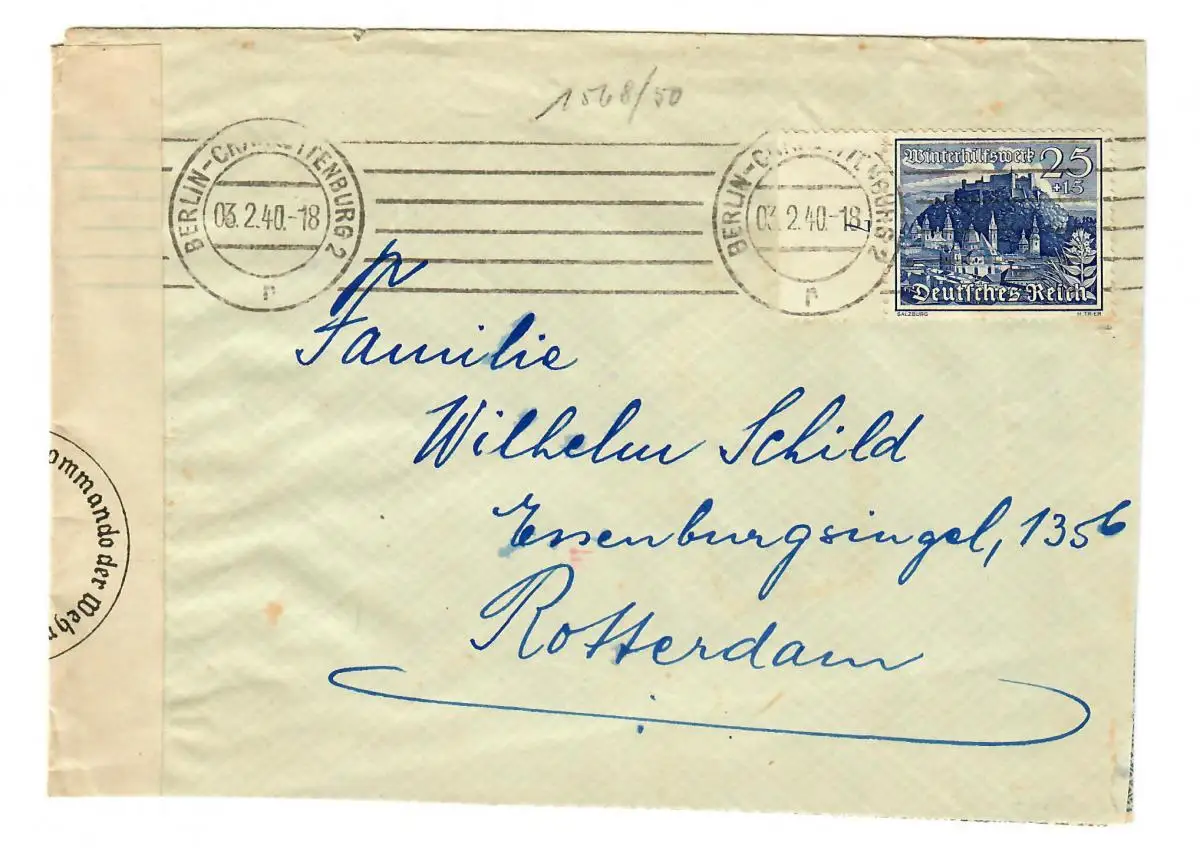 1568/50
BERLIN-CHARLOTTENBURG 2
03.2.40.-18
n
BERLIN-CHARLOTTENBURG 2
03.2.40.-18
n
Winterhilfswerk 25
+15
Deutsches Reich
SALZBURG H.TRIER
Familie
Wilhelm Schild
Essenburgsingel, 135b
Rotterdam
ommando der Wehr